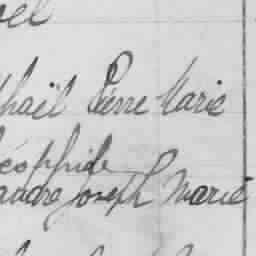 oël
haël Pierre Marie
éophide
andre Joseph Marie